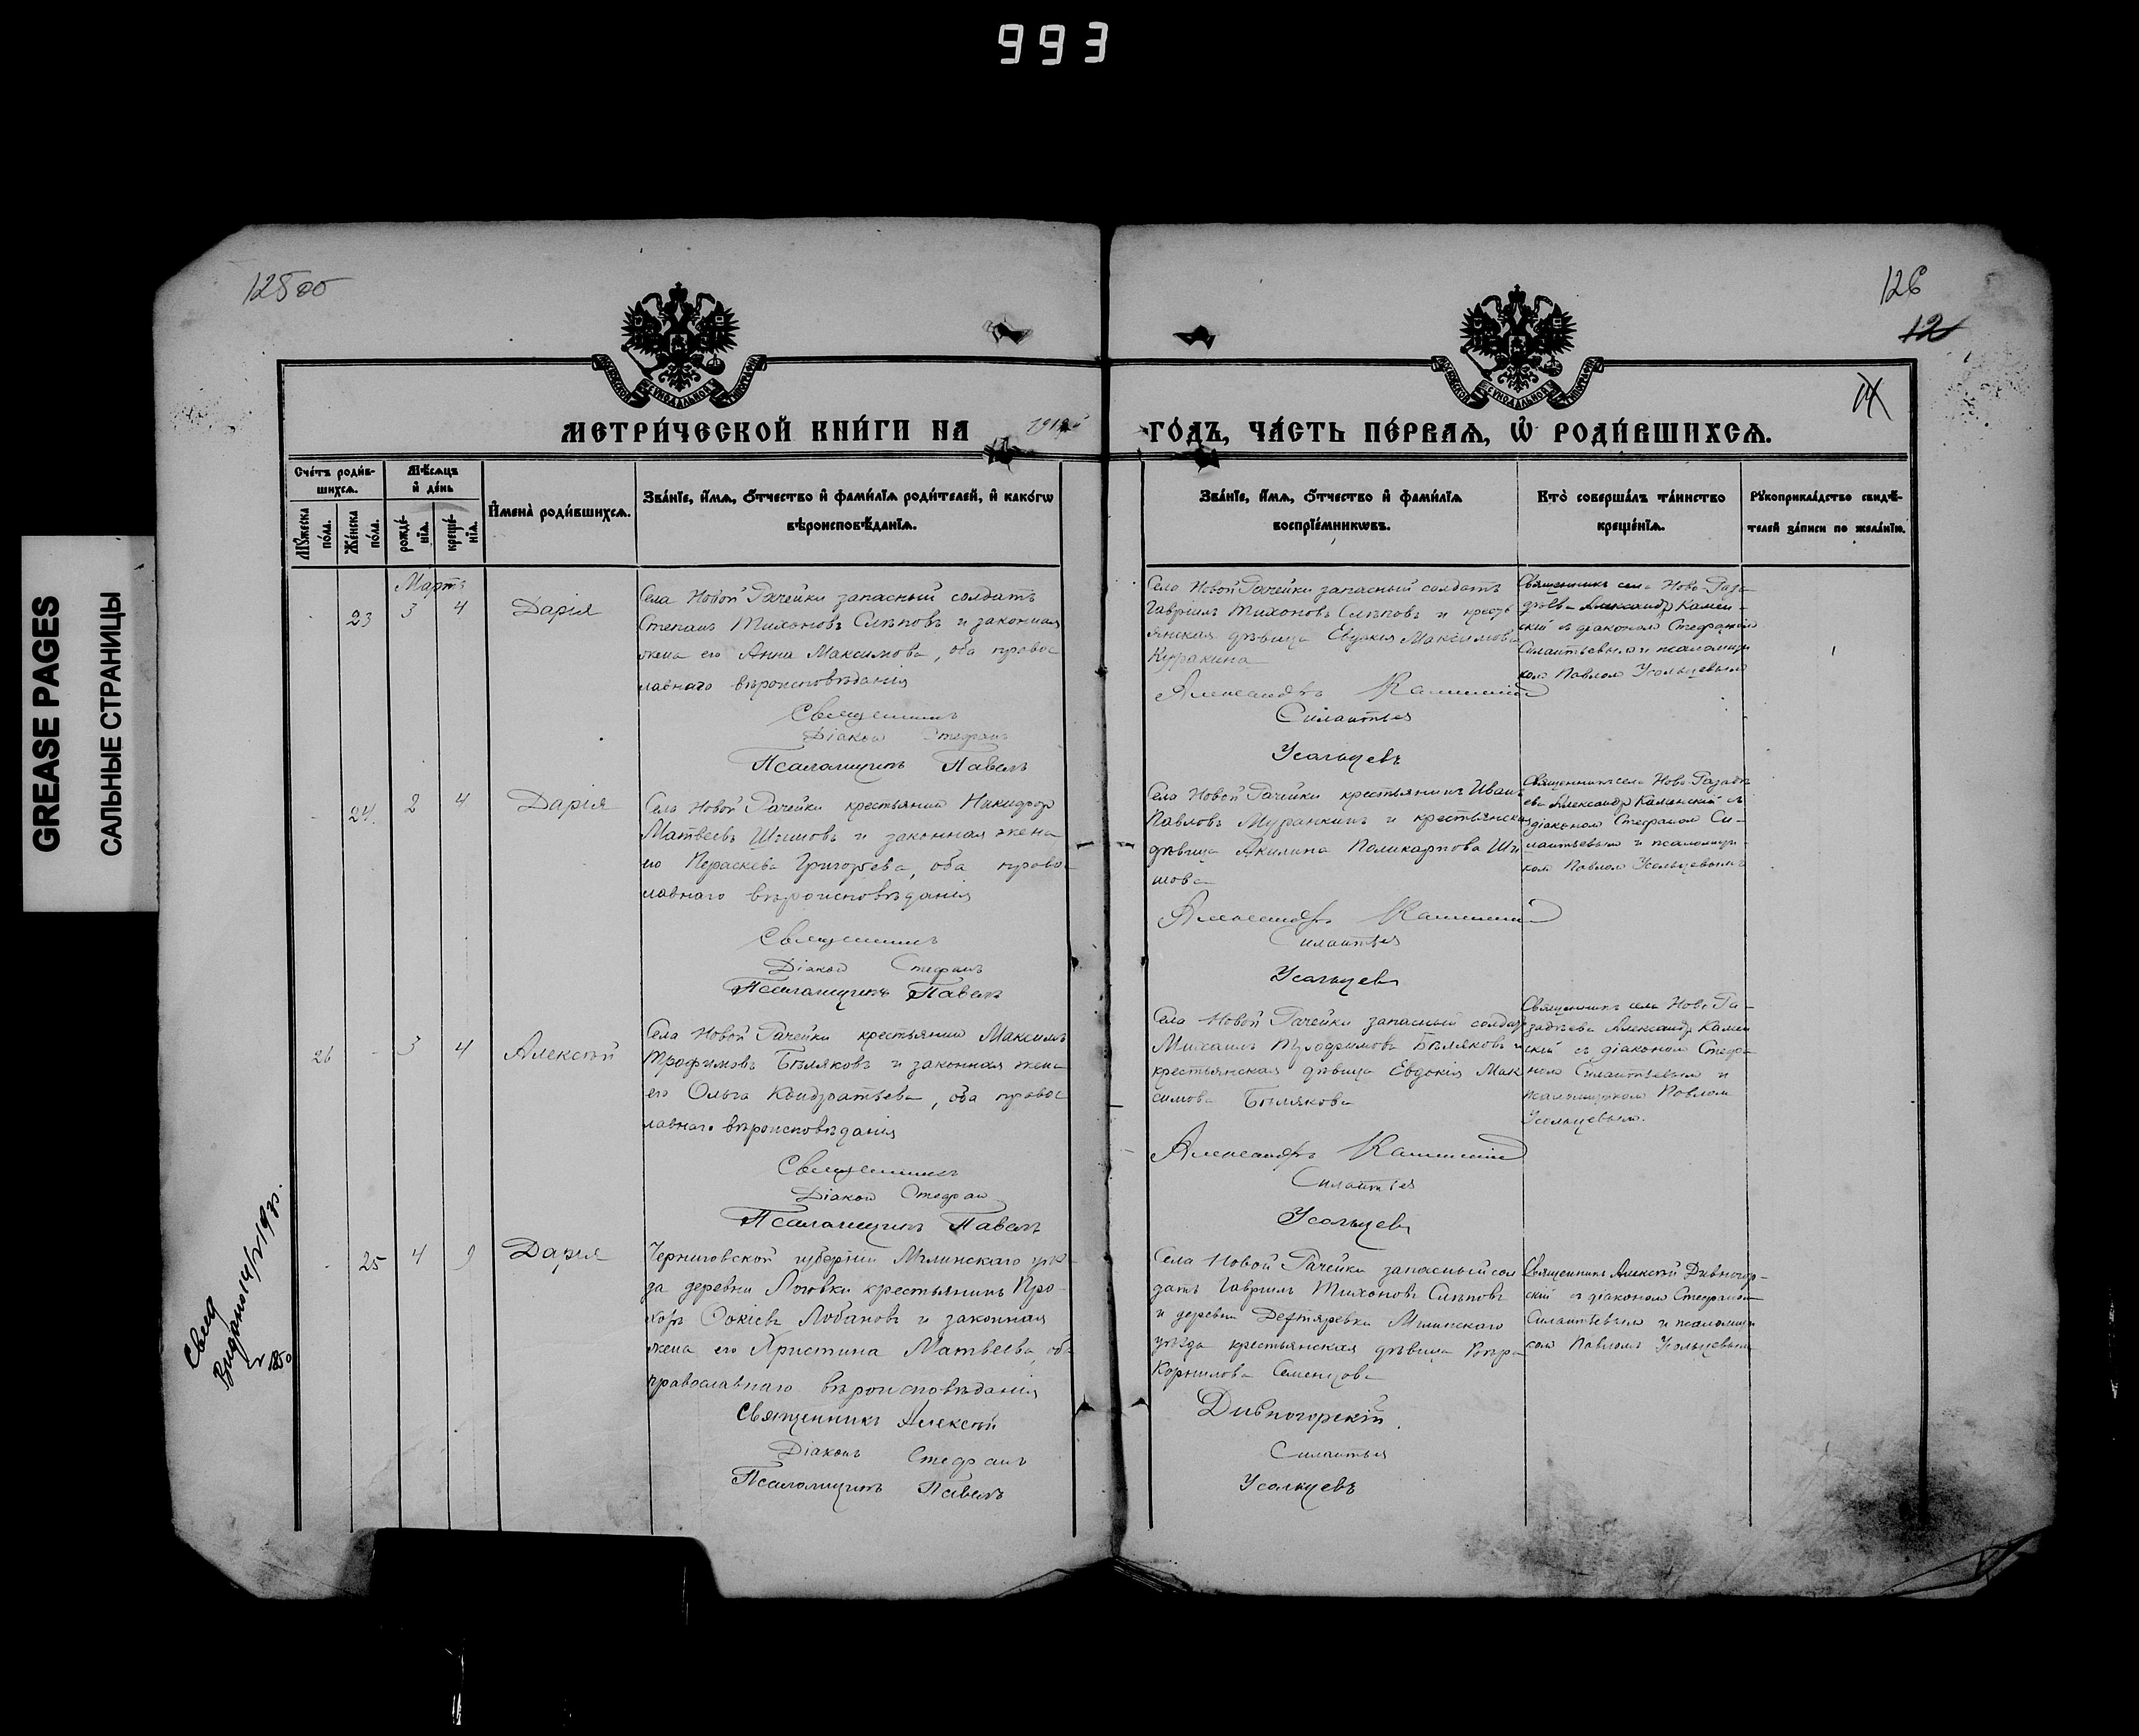 993
GREASE PAGES
САЛЬНЫЕ СТРАНИЦЫ
125 об
126
12
МЕТРИ́ЧЕСКОЙ КНИ́ГИ НА
ГО́ДЪ, ЧА́СТЬ ПЕ́РВАѦ, Ѡ҆ РОДИ́ВШИХСѦ.
Сче́тъ роди́в-
шихсѧ.
Мꙋ́жеска по́ла.
Же́нска по́ла.
Мѣ́сѧцъ
и҆ де́нь
рожде́-
нїѧ.
креще́-
нїѧ.
И҆мена̀ роди́вшихсѧ.
Зва́нїе, и҆́мѧ, ѻ҆́тчество и҆ фами́лїѧ роди́телей, и҆ како́гѡ
вѣроисповѣ́данїѧ.
Зва́нїе, и҆́мѧ, ѻ҆́тчество и҆ фами́лїѧ
воспрїе́мникѡвъ.
Кто̀ соверша́лъ та́инство
креще́нїѧ.
Рꙋкоприкла́дство свидѣ́-
телей за́писи по жела́нїю.
Мартъ
23 3 4 Дарія
Села Новой Рачейки запасный солдатъ
Степанъ Тихоновъ Слѣповъ и законная
жена его Анна Максимова, оба правос
лавнаго вѣроисповѣданія
Священникъ
Діаконъ Стефанъ
Псаломщикъ Павелъ
Села Новой Рачейки запасный солдатъ
Гавріилъ Тихоновъ Слѣповъ и кресть
янская дѣвица Евдокія Максимова
Куракина
Александръ Каменскій
Силантьев
Усольцевъ
Священникъ села Ново-
Александр Камен-
скій съ діакономъ Стефаномъ
Силантьевымъ и псаломщи
комъ Павломъ Усольцевымъ
24. 2 4 Дарія
Села Новой Рачейки крестьянин Никифор
Матвеевъ Шишовъ и законная жена
его Параскева Григорьева, оба право
лавнаго вѣроисповѣданія
Священникъ
Діакон Стефанъ
Псаломщикъ Павелъ
Села Новой Рачейки крестьянинъ Иванъ
Павловъ Муранкинъ и крестьянская
дѣвица Акилина Поликарпова Ши
шова
Александръ Каменскій
Силантьев
Усольцев
Священникъ села Ново-
Александр Каменскій съ
діакономъ Стефаномъ Си-
лантьевымъ и псаломщи-
комъ Павломъ Усольцевымъ
26 - 3 4 Алексѣй
Села Новой Рачейки крестьянин Максимъ
Трофимовъ Бѣляковъ и законная жена
его Ольга Кондратьева, оба правос
лавнаго вѣроисповѣданія
Священникъ
Діакон Стефан
Псаломщикъ Павелъ
Села Новой Рачейки запасный солдат
Михаилъ Трофимовъ Бѣляковъ и
крестьянская дѣвица Евдокія Мак
симова Бѣлякова
Александръ Каменскій
Силантьев
Усольцев
Священникъ села Ново
Александр Камен
скій съ діакономъ Стефа-
номъ Силантьевымъ и
псаломщикомъ Павломъ
Усольцевымъ.
25 4 9 Дарія
Черниговской губерніи Мглинскаго уѣз
да деревни крестьянинъ Про-
хоръ Лобановъ и законная
жена его Христина Матвѣева, оба
православнаго вѣроисповѣданія
Священникъ Алексѣй
Діаконъ Стефанъ
Псаломщикъ Павелъ
Села Новой Рачейки запасный сол
датъ Гавріилъ Тихоновъ Слѣповъ
и деревни Дегтяревки Мглинскаго
уѣзда крестьянская дѣвица
Корнилова Семенцова
Дивногорскій.
Силантьев
Усольцевъ
Священникъ Алексѣй Дивногор-
скій съ діакономъ Стефаномъ
Силантьевымъ и псаломщи
комъ Павломъ Усольцевымъ